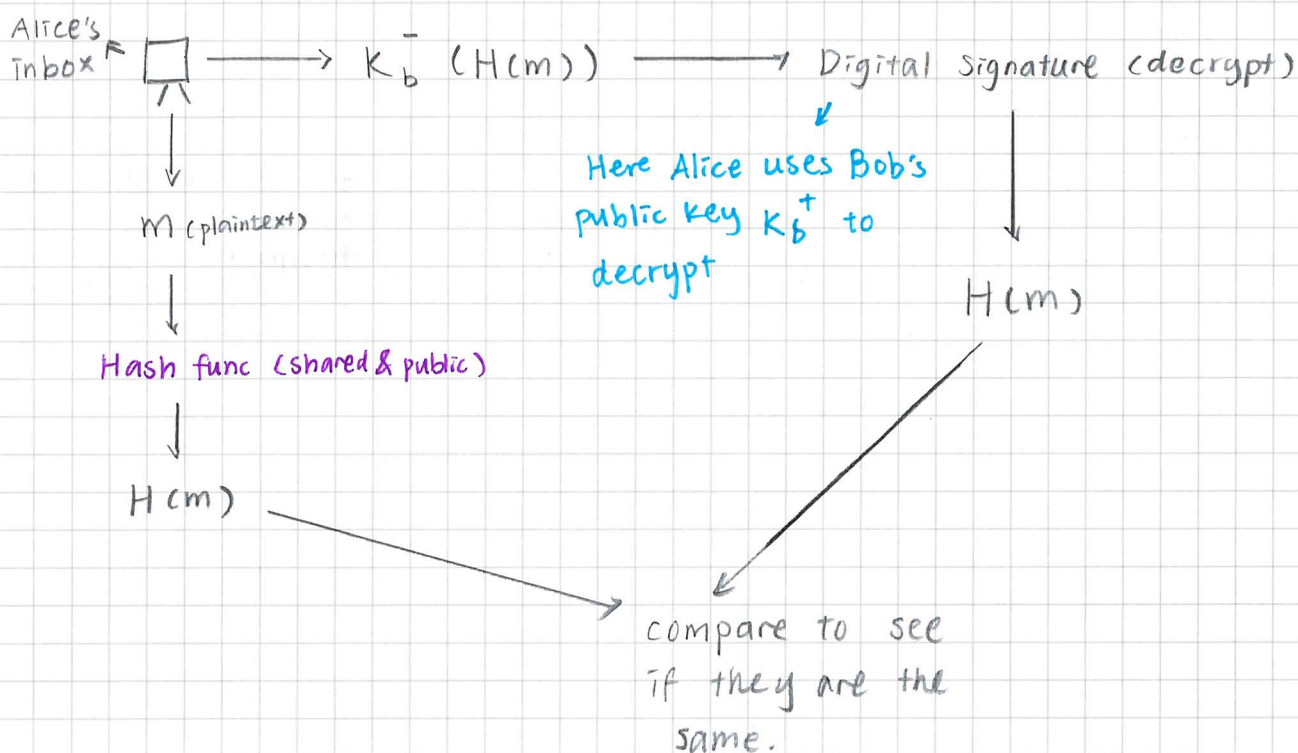 Alice's
inbox
K_b^- (H(m))
Digital Signature (decrypt)
Here Alice uses Bob's
public key K_b^+ to
decrypt
m (plaintext)
H(m)
Hash func (shared & public)
H(m)
compare to see
if they are the
same.